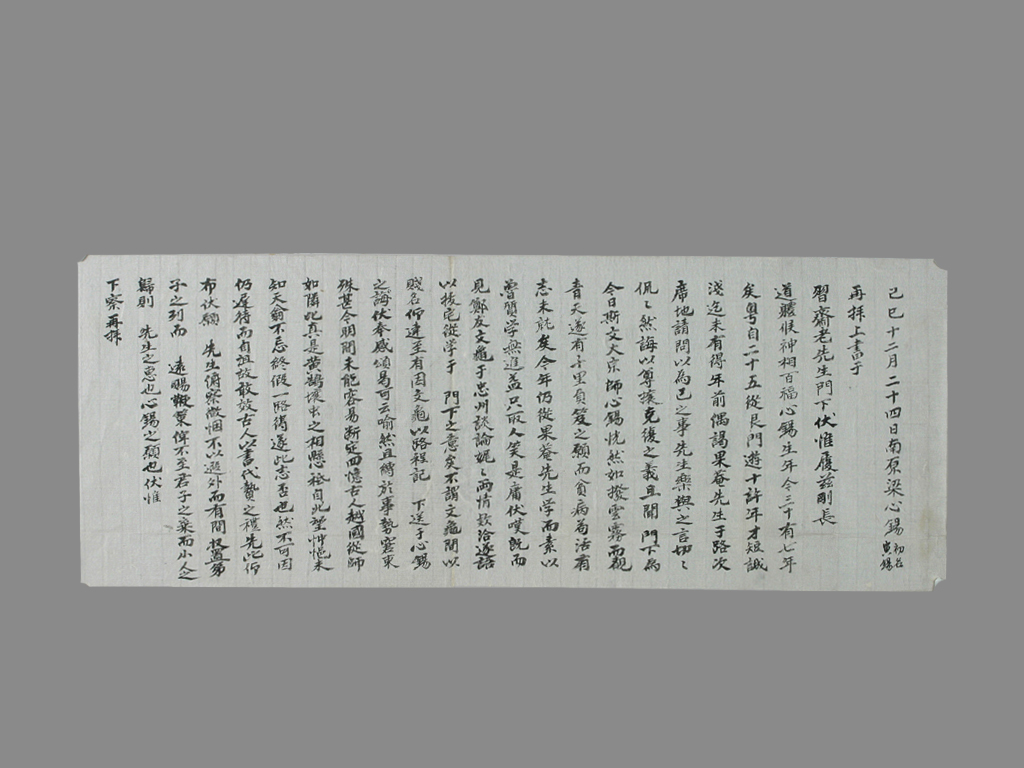 己巳十二月二十四日南原梁心錫初名貞錫
再拜上書于
習齋老先生門下伏惟履玆剛長
道軆候神相百福心錫生年今三十有七年
矣粤自二十五從艮門遊十許年才短誠
淺迄未有得年前偶謁果菴先生于路次
席地請問以為己之事先生樂與之言切〻
侃〻然誨以尊攘克復之義且聞門下為
今日斯文大宗師心錫恍然如撥雲霧而覩
靑天遂有千里負笈之願而貧病為活有
志未就矣今年仍從果菴先生学而素以
魯質学無進益只取人笑是庸伏嘆旣而
見鄭友文龜于忠州談論娓〻兩情歡洽遂語
以拔宅從学于門下之意矣不謂文龜聞以
賤名仰達至有因文龜以路程記下送于心錫
之誨伏奉感頌曷可云喻然且縛於事勢窘束
殊甚今明間未能容易斷定回憶古人越國從師
如隣此真是黃鵠壤虫之相懸秪自北望忡悒未
知天翁不忌終假一路得遂此志否也然不可因
仍遲待而自沮故敢效古人以書代贄之禮先此仰
布伏願先生俯察微悃不以遐外而有間收置弟
子之列而遠賜鞭策俾不至君子之棄而小人之
歸則先生之惠也心錫之願也伏惟
下察再拜